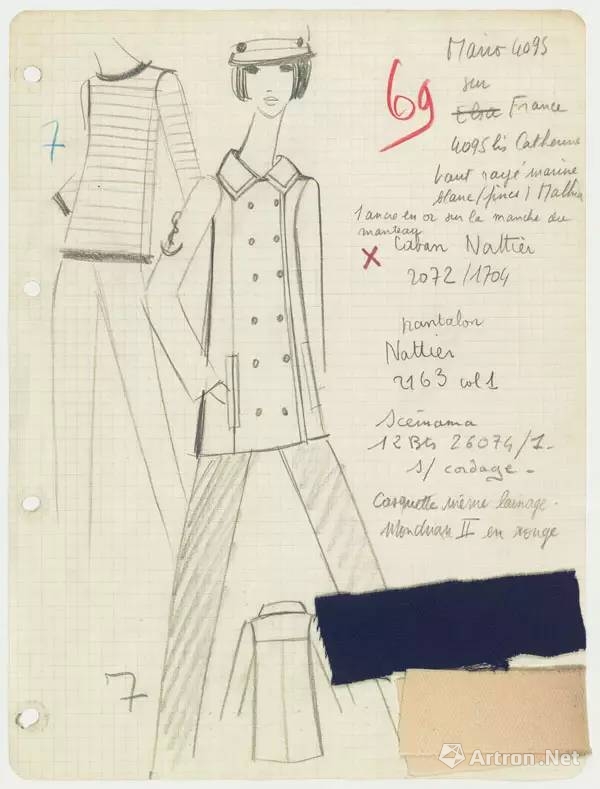 69
Mario 4095
sur
Elsa France
4095 bis Catherine
haut rayé marine
blanc (jincs)
1 ancre en or sur la manche du
manteau
X Caban Nattier
2072/1704
pantalon
Nattier
2163 col 1
Scémama
12 Bts 26074/1-
s/ cordage -
Casquette même lainage
Mondrian II en rouge
7
7
Artron.Net